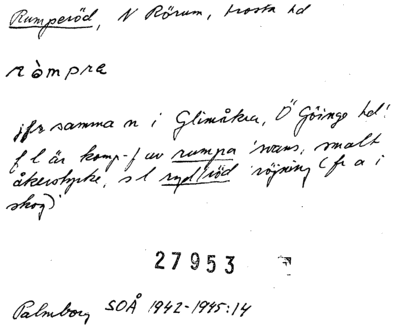 Rumperöd, N Rörum, Frosta hd
ròmpra
jfr samma n i Glimåkra, Ö Göinge hd!
f l är komp-f av rumpa 'svans, smalt
åkerstycke, s l ryd/röd röjning (fr a i
skog)'
27953
Palmborg SOÅ 1942-1945:14